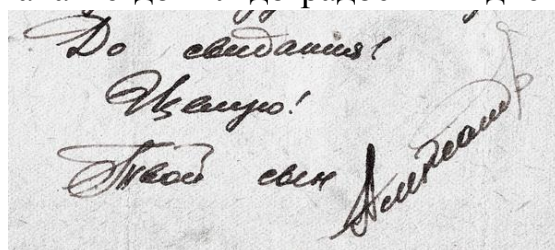 До свидания!
Целую!
Твой сын